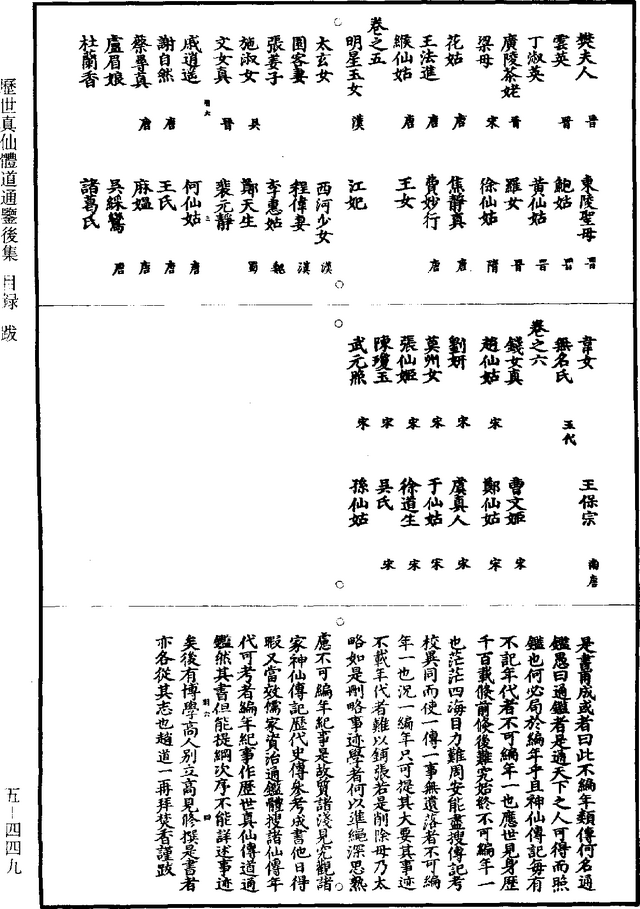 歷世真仙體道通鑒後集　目録　跋
五—四四九
樊夫人　晉　東陵聖母　晋
雲英　晉　鮑姑　晋
丁淑英　黃仙姑　晋
廣陵茶姥　晉　羅女　晉
梁母　宋　徐仙姑　隋
花姑　唐　焦靜真　唐
王法進　唐　費妙行　唐
緱仙姑　唐　王女
卷之五
明星玉女　漢　江妃
太玄女　西河少女　漢
園客妻　程偉妻　漢
張姜子　李惠姑　魏
施淑女　吳　鄭天生　蜀
文女真　晉　裴元靜
戚逍遥　何仙姑　唐
謝自然　唐　王氏　唐
蔡尋真　唐　麻媼　唐
盧眉娘　吳綵鸞　唐
杜蘭香　諸葛氏
韋女　王保宗　南唐
無名氏　五代
卷之六
錢女真　曹文姬　宋
趙仙姑　宋　鄭仙姑　宋
劉妍　宋　虞真人　宋
莫州女　宋　于仙姑　宋
張仙姬　宋　徐道生　宋
陳瓊玉　宋　吳氏　宋
武元照　宋　孫仙姑
是書甫成或者曰此不編年類傳何名通
鑑愚曰通鑑者是通天下之人可得而照
鑑也何必局於編年乎且神仙傳記每有
不記年代者不可編年一也應世見身歷
千百載倏前倏後難究始終不可編年一
也茫茫四海目力難周安能盡搜傳記考
校異同而使一傳一事無遺落者不可編
年一也況一編年只可提其大要其事迹
不載年代者難以鋪張若是削除毋乃太
略如是刪略事迹學者何以準繩深思熟
慮不可編年紀事是故質諸淺見究觀諸
家神仙傳記歷代史傳參考成書他日得
暇又當效儒家資治通鑑體搜諸仙傳年
代可考者編年紀事作歷世真仙傳道通
鑑然其書但能提綱次序不能詳述事迹
矣後有博學高人別立高見修撰是書者
亦各從其志也趙道一再拜焚香謹跋